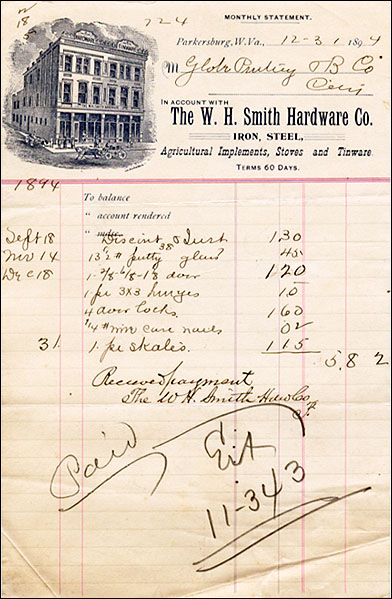 2/18
724
MONTHLY STATEMENT.
Parkersburg, W. Va., 12-31 1894
M Globe Printing & B Co
City
IN ACCOUNT WITH
The W. H. Smith Hardware Co.
IRON, STEEL,
Agricultural Implements, Stoves and Tinware.
TERMS 60 DAYS.
1894
To balance
" account rendered
" mdse.
Sept 18 130
Nov 14 putty 45
Dec 18 1-2/8-6/8-1 3/8 door 120
1 pr 3x3 hinges 10
4 door locks 160
1/4 # nails 02
31 1 pr skales 115
5.82
Received payment
The W. H. Smith Hdw Co
Paid
11-343